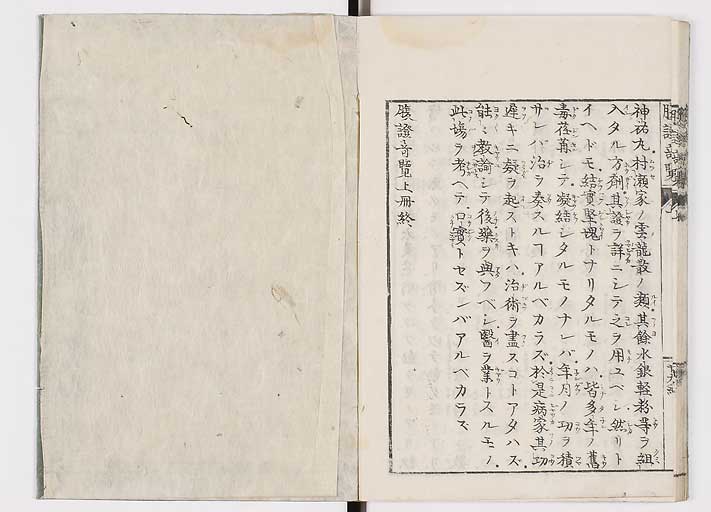 神祐丸村瀬家ノ雲龍散ノ類其餘水銀軽粉等ヲ組
入タル方劑其證ヲ詳ニシテ之ヲ用ユベシ然リト
イヘドモ結實堅塊トナリタルモノハ皆多年ノ舊
毒荏苒シテ凝結シタルモノナレバ年月ノ功ヲ積
サレバ治ヲ奏スルヿアルベカラズ於是病家其功
遅キニ疑ヲ起ストキハ治術ヲ盡スコトアタハズ
能ミ教諭シテ後藥ヲ與フベシ醫ヲ業トスルモノ
此場ヲ考ヘテ口實トセズンバアルベカラズ
證奇覧上冊終